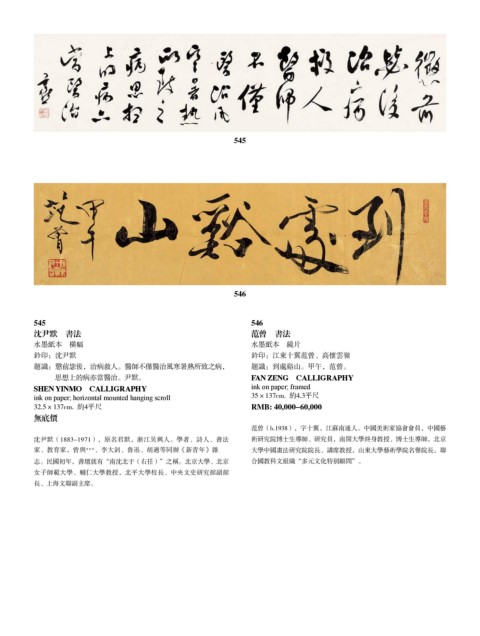 懲前
毖後
治病
救人
醫師
不僅
醫治風
寒暑熱
所致之
病思想
上的病亦
當醫治
尹默
545
到處谿山
甲午
范曾
546
545
沈尹默　書法
水墨紙本　橫幅
鈐印：沈尹默
題識：懲前毖後，治病救人。醫師不僅醫治風寒暑熱所致之病，
思想上的病亦當醫治。尹默。
SHEN YINMO　CALLIGRAPHY
ink on paper; horizontal mounted hanging scroll
32.5 x 137cm. 約4平尺
無底價
沈尹默（1883-1971），原名君默，浙江吳興人。學者、詩人、書法
家、教育家。曾與***、李大釗、魯迅、胡適等同辦《新青年》雜
志。民國初年，書壇就有“南沈北于（右任）”之稱。北京大學、北京
女子師範大學、輔仁大學教授，北平大學校長、中央文史研究館副館
長、上海文聯副主席。
546
范曾　書法
水墨紙本　鏡片
鈐印：江東十翼范曾、高懷雲嶺
題識：到處谿山。甲午，范曾。
FAN ZENG　CALLIGRAPHY
ink on paper; framed
35 × 137cm. 約4.3平尺
RMB: 40,000–60,000
范曾（b.1938），字十翼，江蘇南通人。中國美術家協會會員，中國藝
術研究院博士生導師、研究員，南開大學終身教授、博士生導師，北京
大學中國畫法研究院院長、講席教授，山東大學藝術學院名譽院長，聯
合國教科文組織“多元文化特別顧問”。